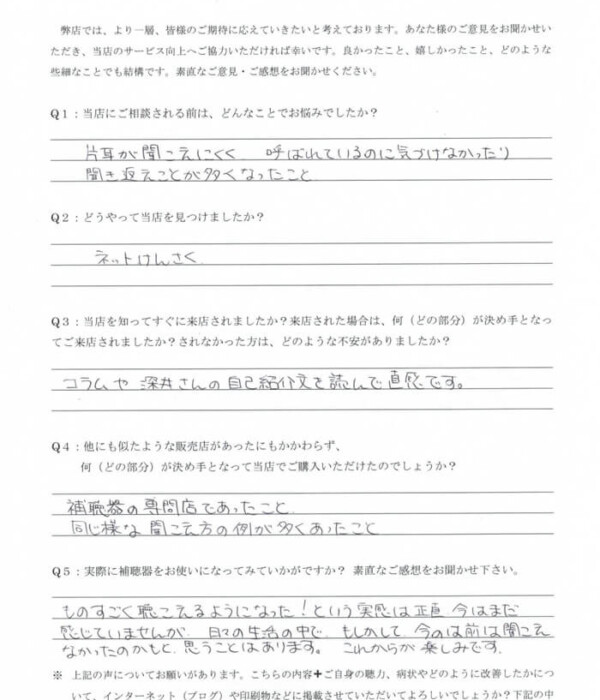 弊店では、より一層、皆様のご期待に応えていきたいと考えております。あなた様のご意見をお聞かせいた
だき、当店のサービス向上へご協力いただければ幸いです。良かったこと、嬉しかったこと、どのような
些細なことでも結構です。素直なご意見・ご感想をお聞かせください。
Q1：当店にご相談される前は、どんなことでお悩みでしたか？
片耳が聞こえにくく 呼ばれているのに気づけなかったり
聞き返えことが多くなったこと
Q2：どうやって当店を見つけましたか？
ネットけんさく
Q3：当店を知ってすぐに来店されましたか？来店された場合は、何（どの部分）が決め手となっ
てご来店されましたか？されなかった方は、どのような不安がありましたか？
コラムや 深井さんの自己紹介文を読んで直感です。
Q4：他にも似たような販売店があったにもかかわらず、
何（どの部分）が決め手となって当店でご購入いただけたのでしょうか？
補聴器の専門店であったこと
同じ様な 聞こえ方の例が多くあったこと
Q5：実際に補聴器をお使いになってみていかがですか？ 素直なご感想をお聞かせ下さい。
ものすごく聴こえるようになった！という実感は正直 今はまだ
感じていませんが 日々の生活の中で もしかして 今のは前は聞こえ
なかったのかもと 思うことはあります。 これからが楽しみです。
※ 上記の声についてお願いがあります。こちらの内容＋ご自身の聴力、病状やどのように改善したかにつ
いて、インターネット（ブログ）や印刷物などに掲載させていただいてよろしいでしょうか？下記の中